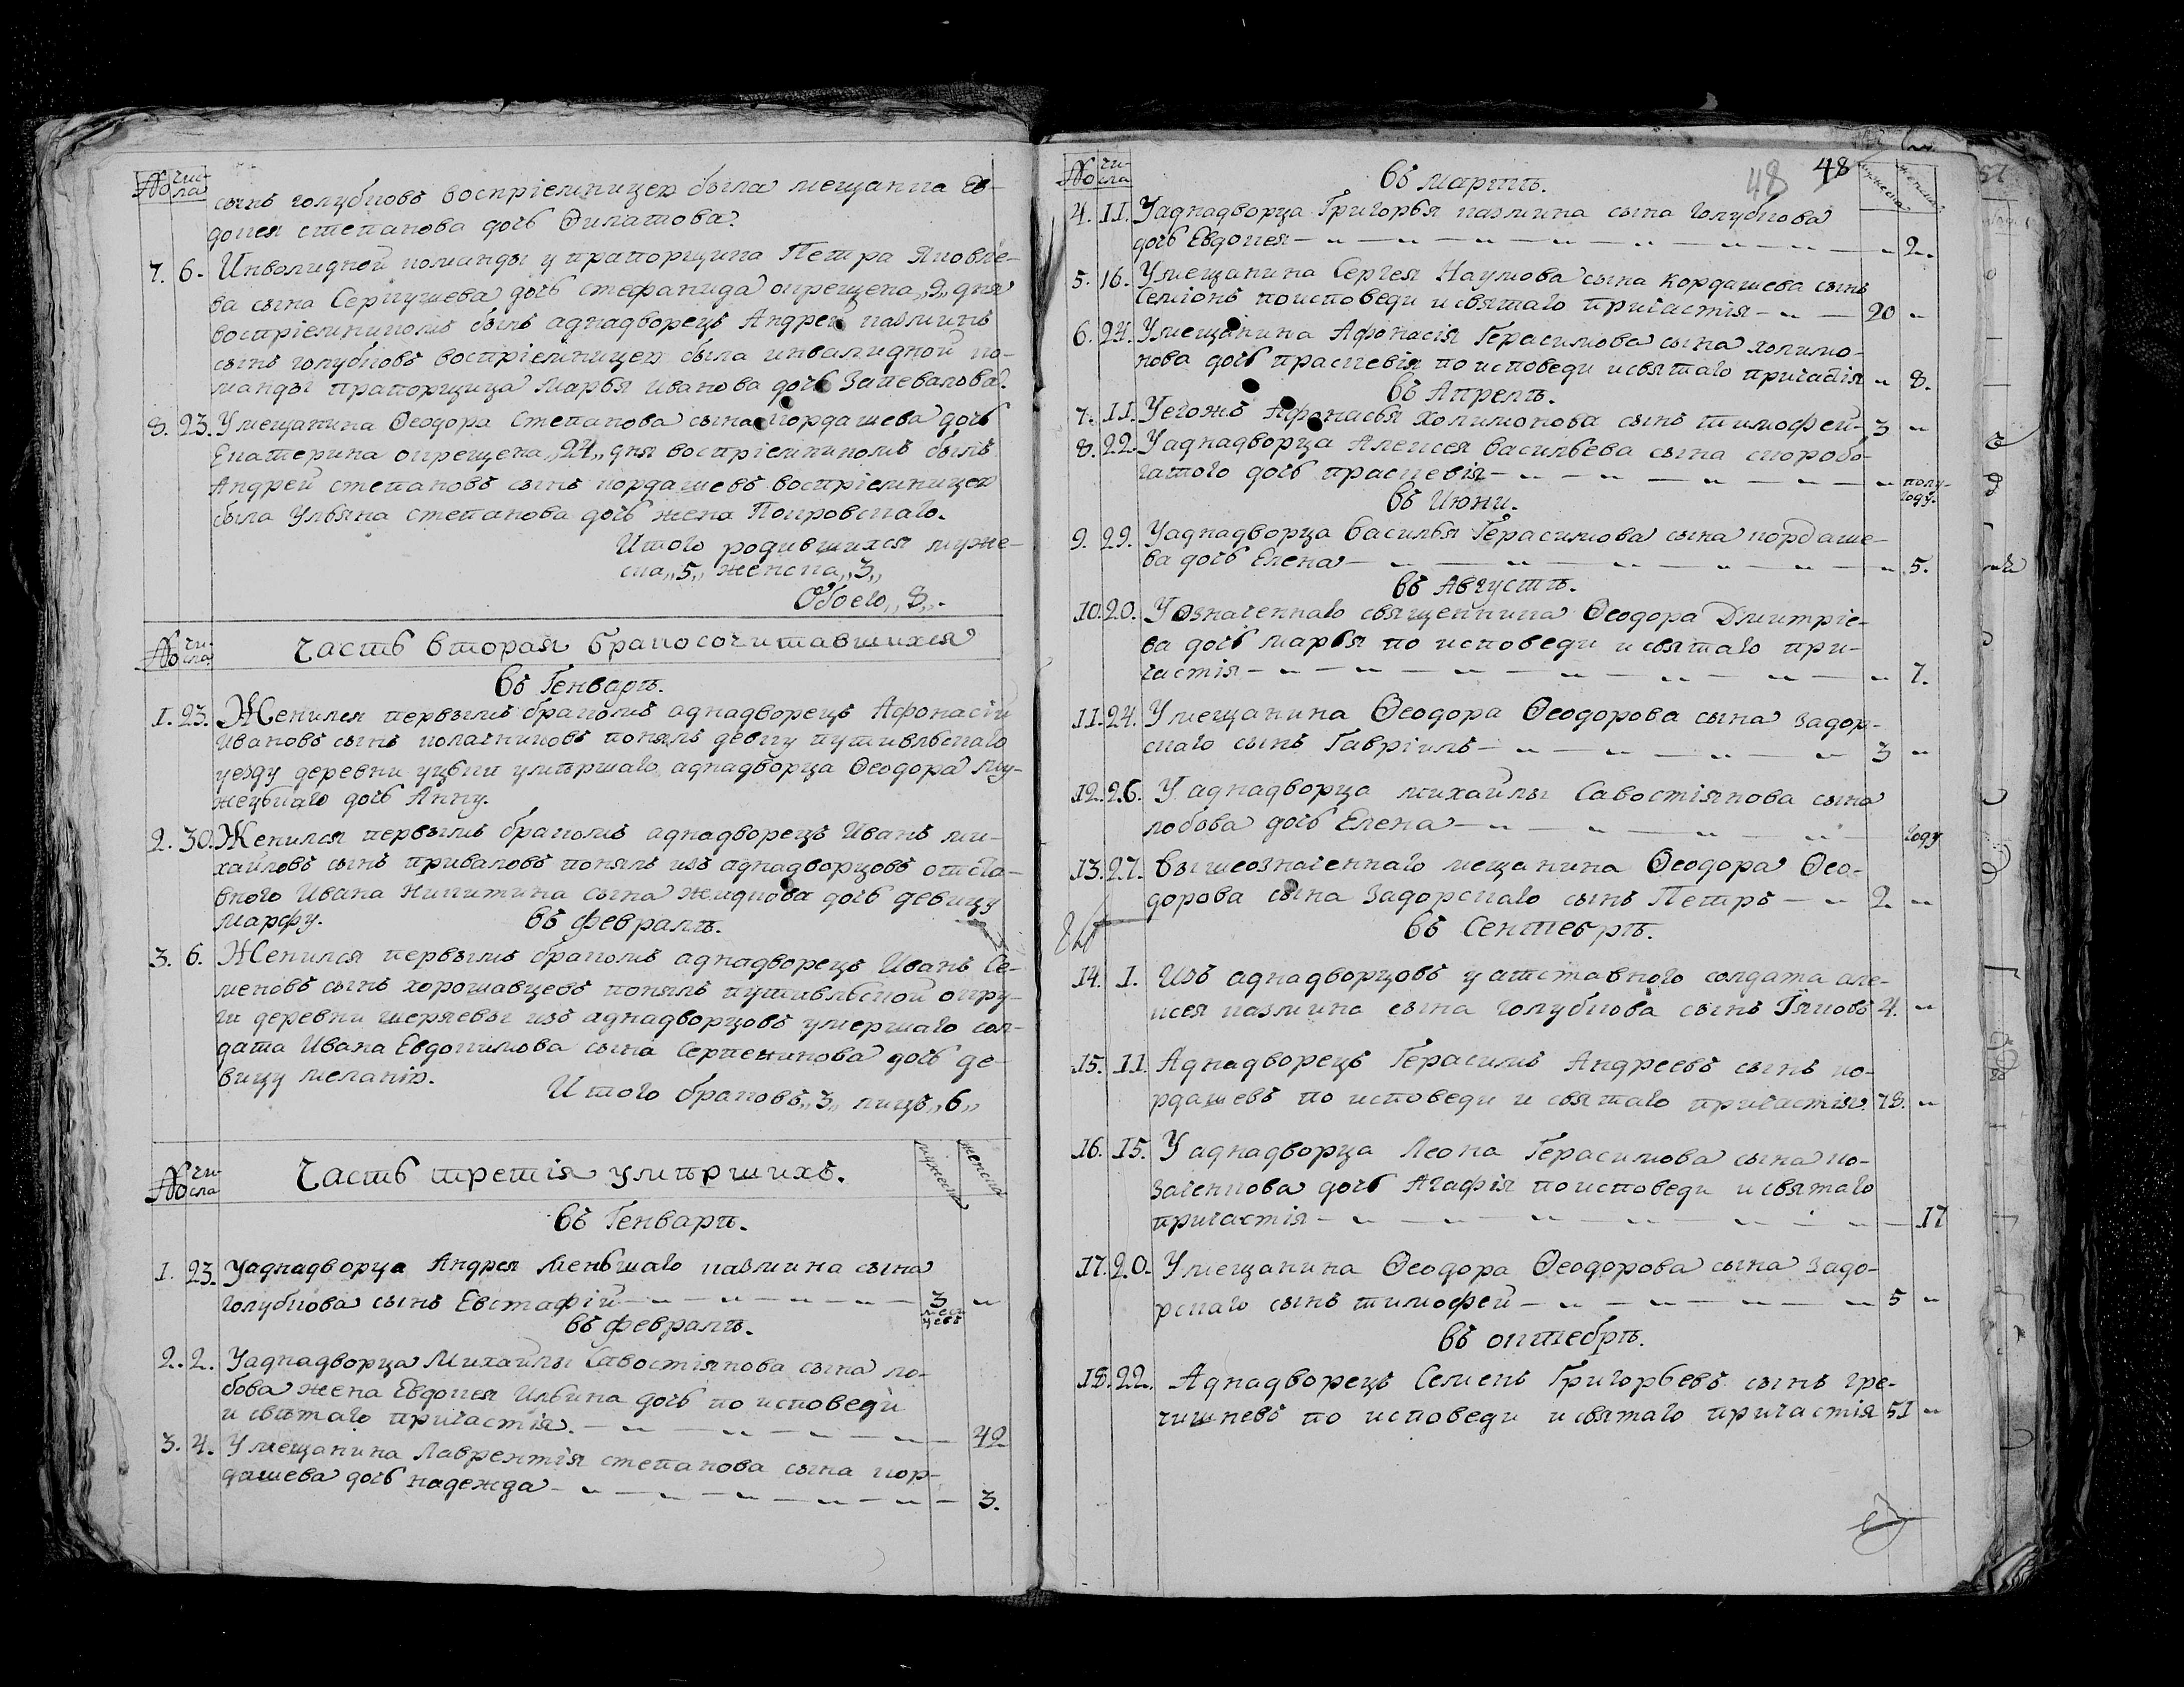 № чи-
сла
сынъ голубковъ воспріемницею была мещанка Ев-
докея степанова дочь Филатова.
7. 6. Инвалидной команды у прапорщика Петра Яковле-
ва сына Серпушева дочь стефанида окрещена „9„ дня
воспріемникомъ былъ аднадворецъ Андрей казминъ
сынъ голубковъ воспріемницею была инвалидной ко-
манды прапорщица Марья Иванова дочь Запевалова.
8. 23. У мещанина Ѳеодора Степанова сына кордашева дочь
Екатерина окрещена „24„ дня воспріемникомъ былъ
Андрей степановъ сынъ кордашевъ воспріемницею
была Ульяна степанова дочь жена Покровскаго.
Итого родившихся муже-
ска „5„ женска „3„
Обоего „8„.
№ чи-
сла
Часть вторая бракосочитавшихся
въ Генварѣ.
1. 23. Женился первымъ бракомъ аднадворецъ Афонасій
Ивановъ сынъ колачниковъ понялъ девку путивльскаго
уезду деревни уцкии умѣршаго аднадворца Ѳеодора му-
жецкаго дочь Анну.
2. 30. Женился первымъ бракомъ аднадворецъ Иванъ ми-
хайловъ сынъ приваловъ понялъ изъ аднадворцовъ отста-
вного Ивана никитина сына жидкова дочь девицу
Марфу.
въ февралѣ.
3. 6. Женился первымъ бракомъ аднадворецъ Иванъ Се-
меновъ сынъ хорошавцевъ понялъ путивльской окру-
ги деревни шеряевы изъ аднадворцовъ умершаго сол-
дата Ивана Евдокимова сына Серпенинова дочь де-
вицу меланію.
Итого браковъ „3„ лицъ „6„
№ чи-
сла
Часть третія умѣршихъ.
мужеска женска
въ Генварѣ.
1. 23. У аднадворца Андрея Меньшаго казмина сына
голубкова сынъ Евстафій — 3 меся-
цевъ „
въ февралѣ.
2. 2. У аднадворца Михайлы Савостіянова сына ло-
бова жена Евдокея Ильина дочь по исповеди
и святаго причастія. — 42
3. 4. У мещанина Лаврентія степанова сына кор-
дашева дочь надежда — 3.
№ чи-
сла
въ мартѣ.
48 48
мужеска женска
4. 11. У аднадворца Григорья казмина сына голубкова
дочь Евдокея — „ 2.
5. 16. У мещанина Сергея Наумова сына кордашева сынъ
Семіонъ по исповеди и святаго причастія — 20 „
6. 24. У мещанина Афонасія Герасимова сына холимо-
нова дочь праскевія по исповеди и святаго причастія „ 8.
въ Апрелѣ.
7. 11. У егожъ Афонасья холимонова сынъ тимофей 3 „
8. 22. У аднадворца Алексея васильева сына скоробо-
гатого дочь праскевія — „ полу-
году.
въ Июни.
9. 29. У аднадворца василья Герасимова сына кордаше-
ва дочь Елена — „ 5.
въ Августѣ.
10. 20. У означеннаго священника Ѳеодора Дмитріе-
ва дочь марья по исповеди и святаго при-
частія — „ 7.
11. 24. У мещанина Ѳеодора Ѳеодорова сына задор-
скаго сынъ Гавріилъ — 3 „
12. 26. У аднадворца михайлы Савостіянова сына
лобова дочь Елена — году
13. 27. Вышеозначеннаго мещанина Ѳеодора Ѳео-
дорова сына Задорскаго сынъ Петръ — 2 „
въ Сентебрѣ.
14. 1. Изъ аднадворцовъ у атставного солдата але-
ксея казмина сына голубкова сынъ Іяковъ 4. „
15. 11. Аднадворецъ Герасимъ Андреевъ сынъ ко-
рдашевъ по исповеди и святаго причастія. 78. „
16. 15. У аднадворца Леона Герасимова сына ко-
заченкова дочь Агафія по исповеди и святаго
причастія — 17
17. 20. У мещанина Ѳеодора Ѳеодорова сына задо-
рскаго сынъ тимофей — 5 „
въ октебрѣ.
18. 22. Аднадворецъ Семенъ Григорьевъ сынъ гре-
чишневъ по исповеди и святаго причастія 51 „